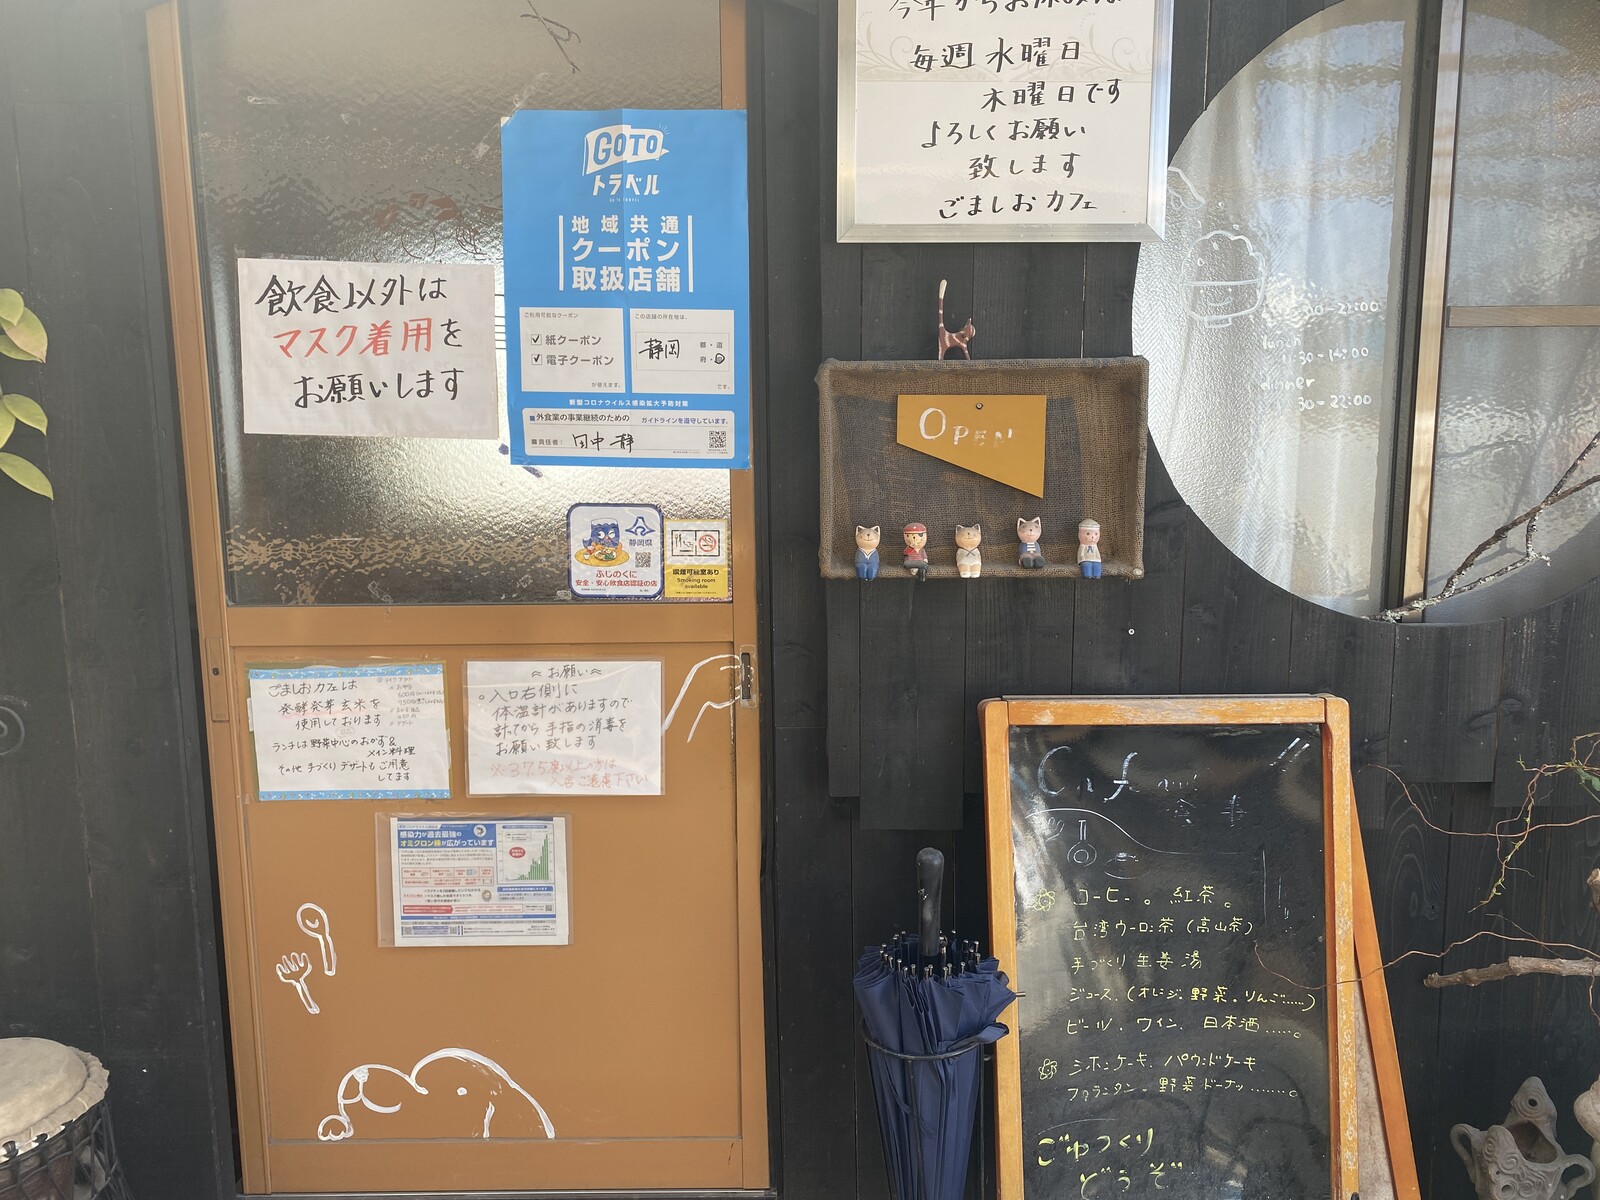 毎週水曜日
木曜日です
よろしくお願い
致します
ごましおカフェ
GOTO
トラベル
地域共通
クーポン
取扱店舗
ご利用可能なクーポン
紙クーポン
電子クーポン
が使えます。
この店舗の所在地は、
静岡
都・道
府・
です。
新型コロナウイルス感染拡大予防対策
外食業の事業継続のための ガイドラインを遵守しています。
責任者:
飲食以外は
マスク着用を
お願いします
静岡県
ふじのくに
安全・安心飲食店認証の店
喫煙可能室あり
Smoking room
available
OPEN
lunch
dinner
ごましおカフェは
発酵発芽玄米を
使用しております
ランチは野菜中心のおかず&
メイン料理
その他手づくりデザートもご用意
してます
お願い
入口右側に
体温計がありますので
計ってから手指の消毒を
お願い致します
※37.5度以上の方は
入店ご遠慮下さい
感染力が過去最強の
オミクロン株が広がっています
食事
コーヒー。紅茶。
台湾ウーロン茶(高山茶)
手づくり生姜湯
ジュース.(オレンジ.野菜.りんご……)
ビール.ワイン.日本酒……。
シホンケーキ.パウンドケーキ
フロランタン.野菜ドーナッ……。
ごゆっくり
どうぞ